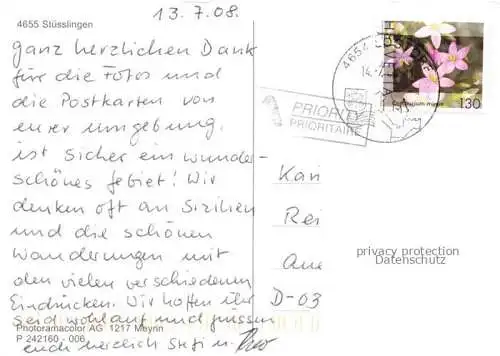 4655 Stüsslingen
13.7.08.
ganz herzlichen Dank
für die Fotos und
die Postkarten von
eurer Umgebung,
ist sicher ein wunder-
schönes gebiet! Wir
denken oft an Sizilien
und die schönen
Wanderungen mit
den vielen verschiedenen
Eindrücken. Wir hoffen ihr
seid wohlauf und grüssen
euch herzlich Stefi u.
Photoramacolor AG 1217 Meyrin
P 242160 - 006
4654
PRIORITY
PRIORITAIRE
130
Rei
D-03
privacy protection
Datenschutz